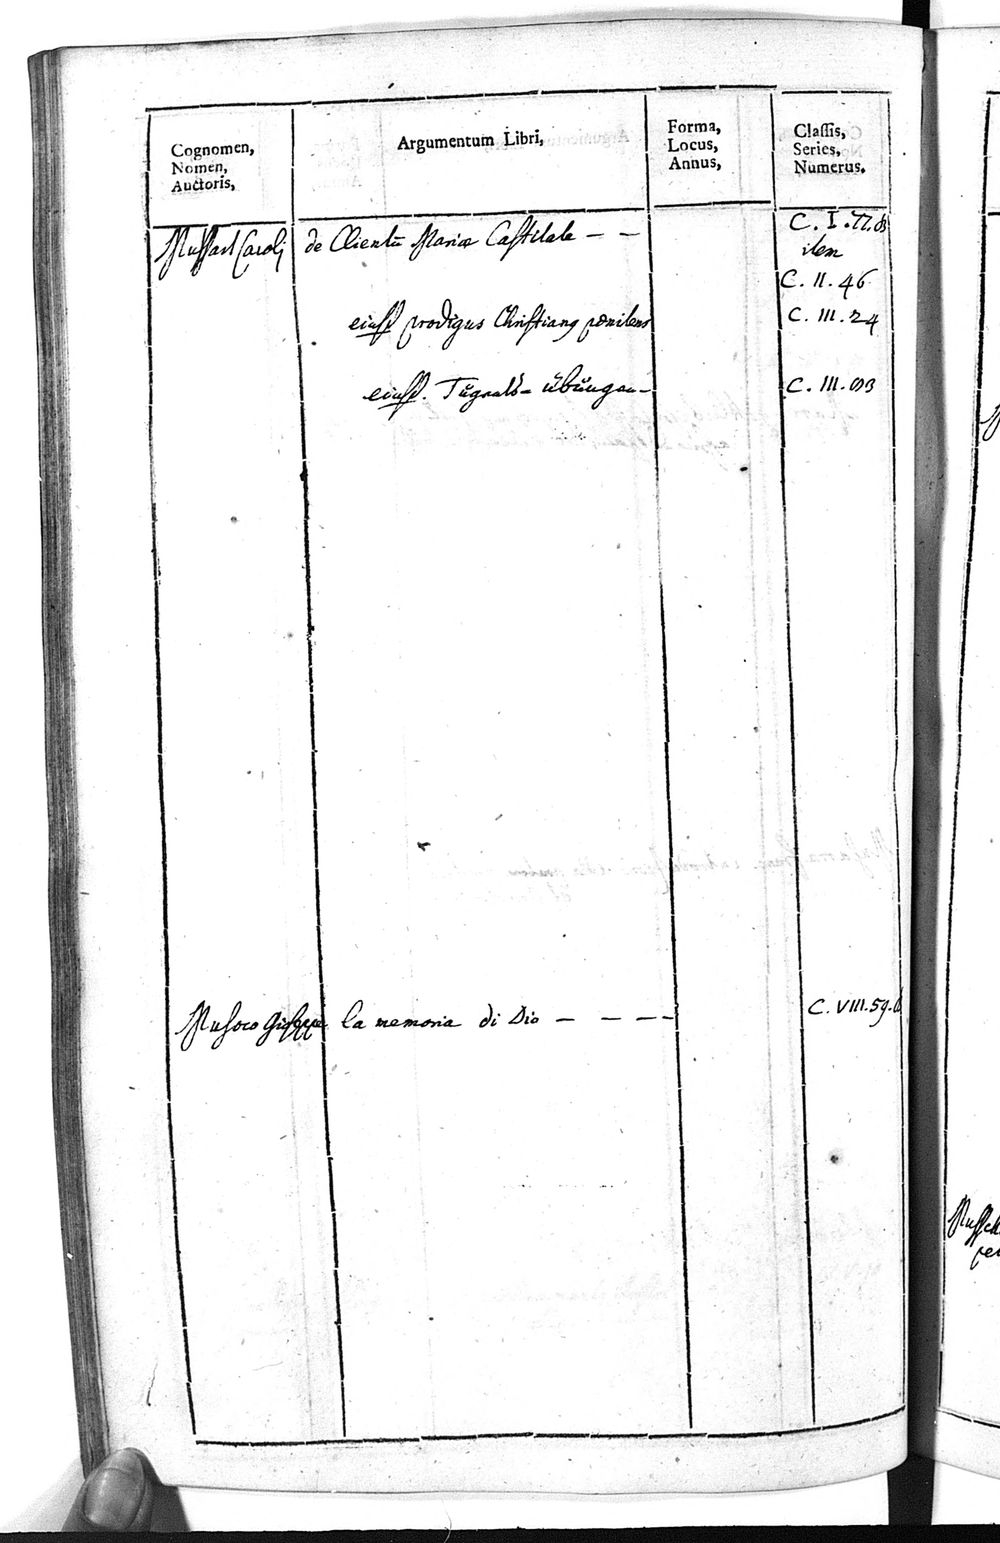 Cognomen,
Nomen,
Auctoris,
Argumentum Libri,
Forma,
Locus,
Annus,
Classis,
Series,
Numerus.
Mussart Caroli de Clientū Mariæ Castitate – – C. I. 77.
item
C. II. 46
eiusd prodigus Christiang pœnitens C. III. 24
eiusd. Tugends- übungen- C. III.
Musoco Giuseppe la memoria di Dio – – – – C. VIII. 59. b